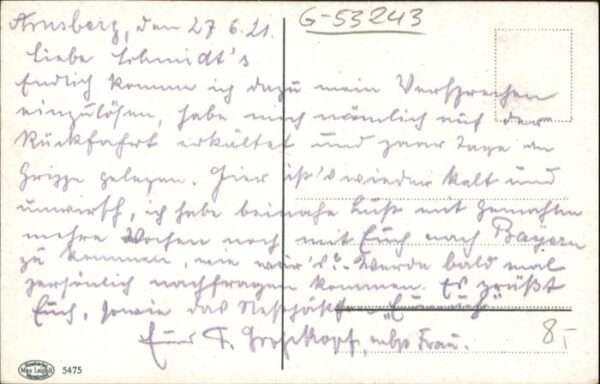 G-53243
Arnsberg, den 27.6.21.
Liebe Schmidt's
Endlich komme ich dazu mein Versprechen
einzulösen, habe mich nämlich auf der
Rückfahrt erkältet und paar Tage an
Grippe gelegen. Hier ist's wieder kalt und
unwirsch, ich habe beinahe Lust mit Gemahlin
mehre Wochen noch mit Euch nach Bayern
zu kommen, wie wär's?- Werde bald mal
persönlich nachfragen kommen. Es grüßt
Euch, sowie das
Euer F. Großkopf, nebst Frau.
8,-
5475